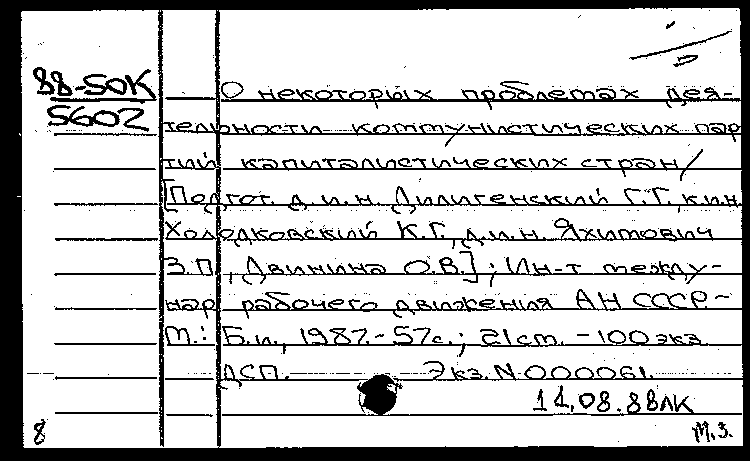 88-50К
5602
О некоторых проблемах дея-
тельности коммунистических пар
тий капиталистических стран /
[Подгот. д.и.н. Дилигенский Г.Г., к.и.н.
Холодковский К.Г., д.и.н. Яхимович
З.П., Двинина О.В.]; Ин-т между-
нар рабочего движения АН СССР.-
М.: Б.и., 1987.- 57с.; 21см. - 100 экз.
ДСП. Экз. N 000061.
14.08.88ЛК
8 М.З.